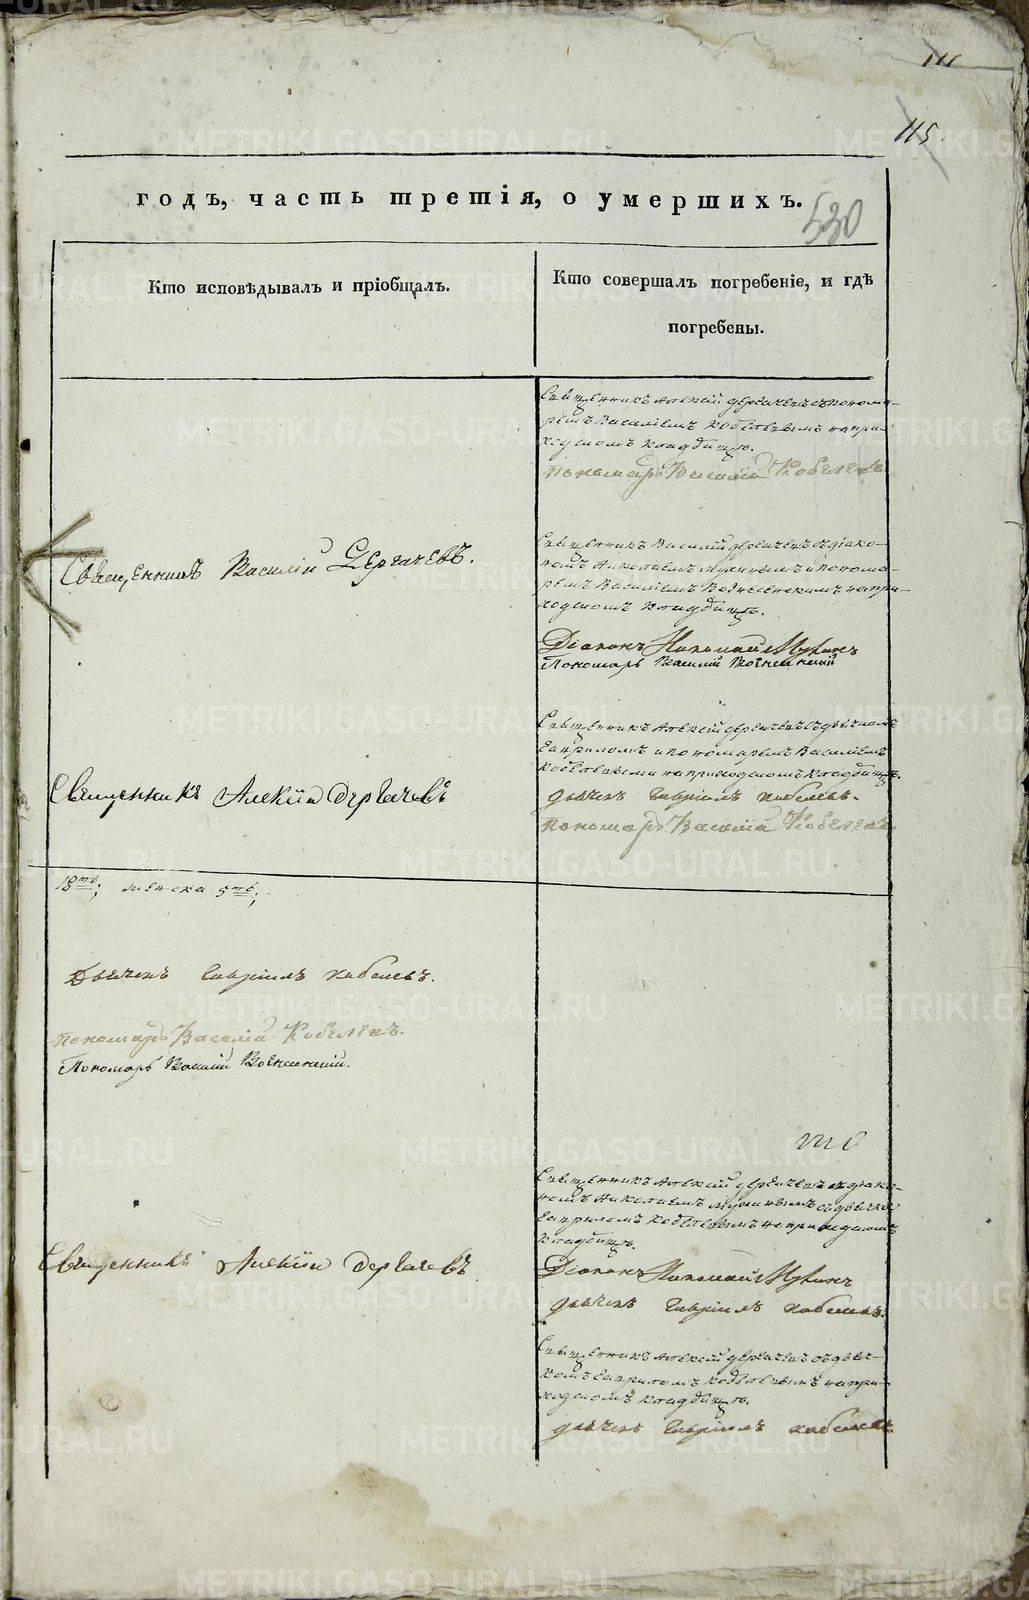 111
115.
годъ, часть третія, о умершихъ.
530
Кто исповѣдывалъ и пріобщалъ.
Кто совершалъ погребеніе, и гдѣ
погребены.
Священникъ Алексій Дергачевъ съ понома-
ремъ Василіемъ Кобелевымъ на при-
ходскомъ кладбищѣ.
пономарь Василій Кобелевъ
Священникъ Василій Дергачевъ.
Священникъ Василій Дергачевъ съ діако-
номъ Николаемъ Мухинымъ и понома-
ремъ Василіемъ Вознесенскимъ на при-
ходскомъ кладбищѣ.
Діаконъ Николай Мухинъ
Пономарь Василій Вознесенскій
Священникъ Алексій Дергачевъ
Священникъ Алексій Дергачевъ съ дьячкомъ
Гавриломъ и пономаремъ Василіемъ
Кобелевыми на приходскомъ кладбищѣ.
дьячекъ Гавріилъ Кобелевъ.
пономарь Василій Кобелевъ
женска 5ть;
Дьячекъ Гавріилъ Кобелевъ.
пономарь Василій Кобелевъ.
Пономарь Василій Вознесенскій.
Священникъ Алексій Дергачевъ
Священникъ Алексій Дергачевъ съ діако-
номъ Николаемъ Мухинымъ
Гавриломъ Кобелевымъ на приходскомъ
кладбищѣ.
Діаконъ Николай Мухинъ
дьячекъ Гавріилъ Кобелевъ.
Священникъ Алексій Дергачевъ съ дьяч-
комъ Гавриломъ Кобелевымъ на при-
ходскомъ кладбищѣ.
дьячекъ Гавріилъ Кобелевъ
METRIKI.GASO-URAL.RU